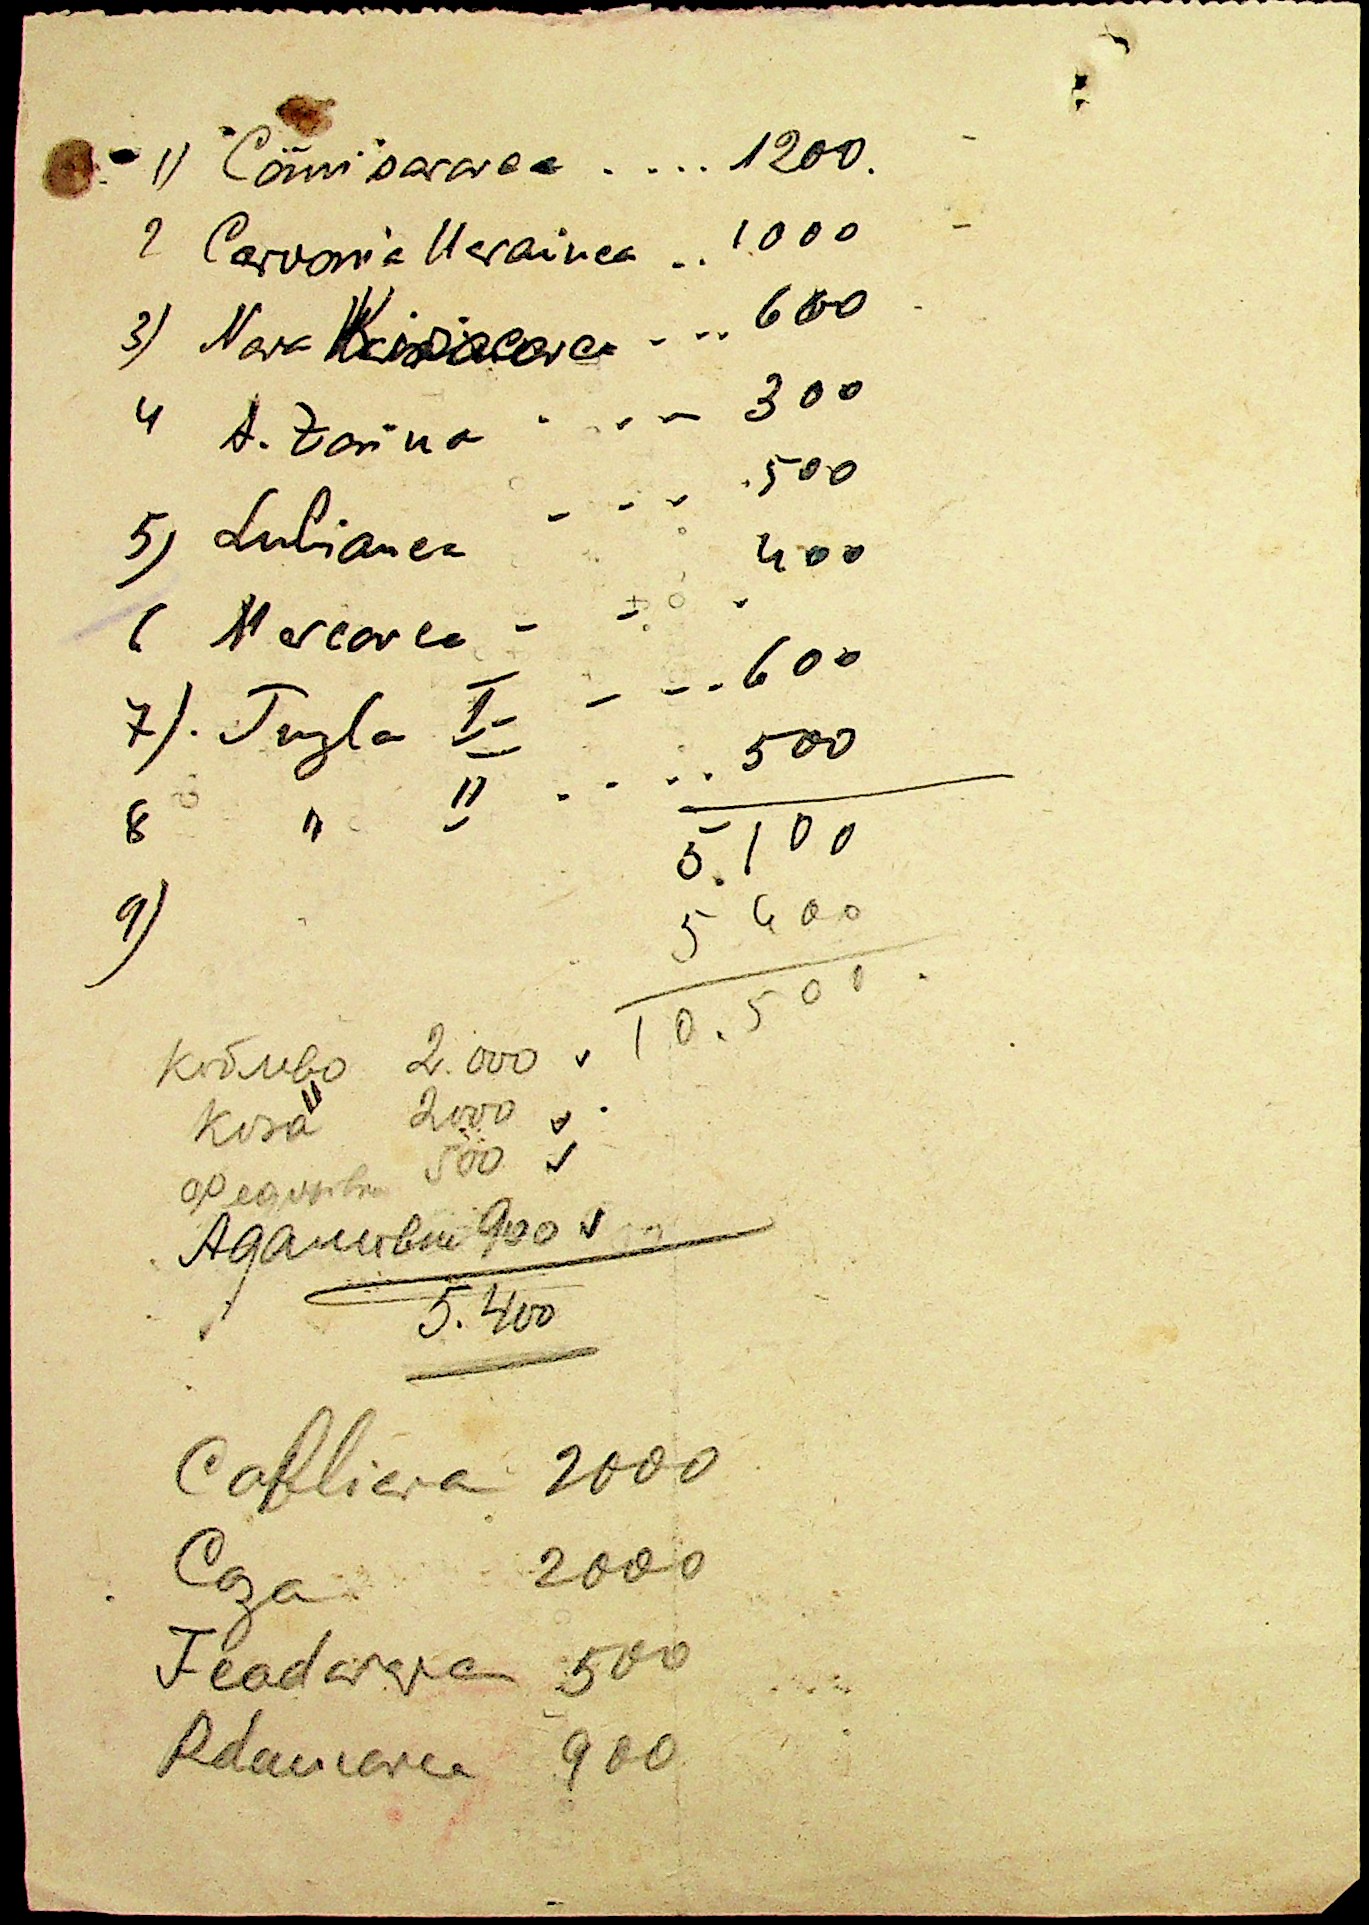 1) Comisarovca .... 1200.
2 Carvonia Ucrainca .. 1000
3) Nova Kiriacovca - ... 600
4 A. Zorina . . . - 300
5) Lubianca - - - - 500
6 Marcovca - - - 400
7). Tuzla I - - - . . 600
8 " II . . . . . 500
5.100
9) 5400
10.500.
Коблево 2.000 v
Коза 2000 v
Федоровка 500 v
Адамовка 900 v
5.400
Cobliova 2000
Coza 2000
Feodorovca 500
Adamovca 900